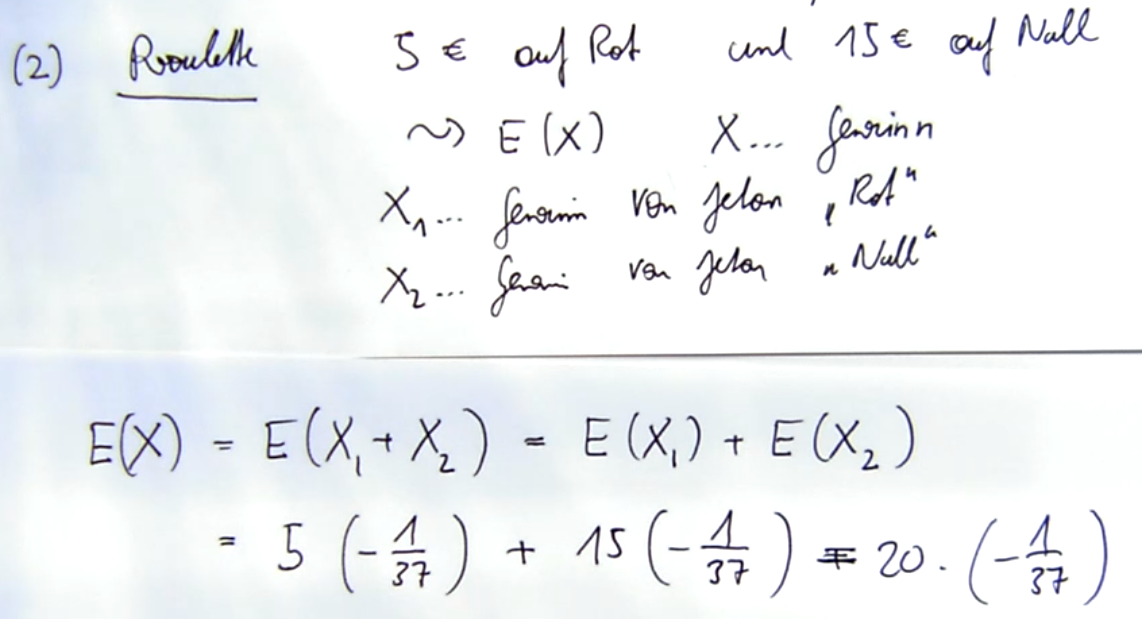 (2) Roulette 5 € auf Rot und 15 € auf Null
⇝ E(X) X... Gewinn
X₁... Gewinn von Jeton „Rot“
X₂... Gewinn von Jeton „Null“
E(X) = E(X₁ + X₂) = E(X₁) + E(X₂)
= 5 (-1/37) + 15 (-1/37) = 20 · (-1/37)